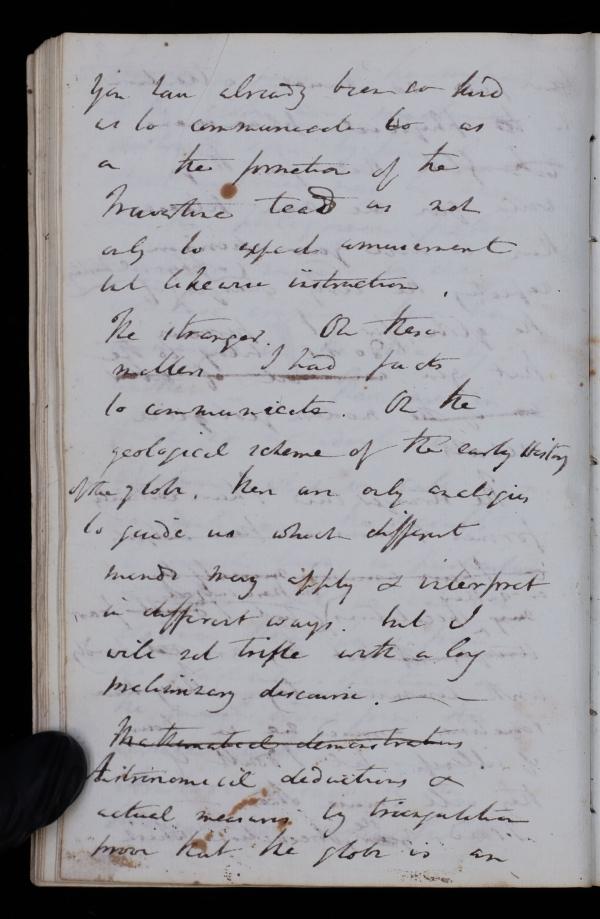 you have already been so kind
as to communicate to us
on the formation of the
Travertine lead us not
only to expect amusement
but likewise instruction.
The stranger. On these
matters I had facts
to communicate. On the
geological scheme of the early History
of the globe, there are only analogies
to guide us which different
minds may apply & interpret
in different ways. but I
will not trifle with a long
preliminary discourse. —
Mathematical demonstrations
Astronomical deductions &
actual measures by triangulation
prove that the globe is an